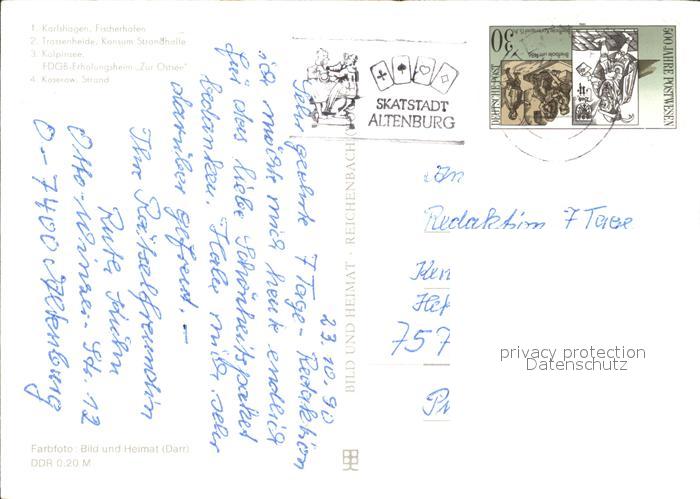 1. Karlshagen, Fischerhafen
2. Trassenheide, Konsum Strandhalle
3. Kölpinsee,
FDGB-Erholungsheim „Zur Ostsee"
4. Koserow, Strand
SKATSTADT
ALTENBURG
DEUTSCHE POST
30
500 JAHRE POSTWESEN
23.10.90
Sehr geehrte 7 Tage-Redaktion
ich möchte mich heute endlich
für das liebe Schönheitspaket
bedanken. Habe mich sehr
darüber gefreut. –
Ihre Rätselfreundin
Ruth Kühn
Otto-Straße 12
O-7400 Altenburg
BILD UND HEIMAT · REICHENBACH
An
Redaktion 7 Tage
757
privacy protection
Datenschutz
Farbfoto: Bild und Heimat (Darr)
DDR 0,20 M